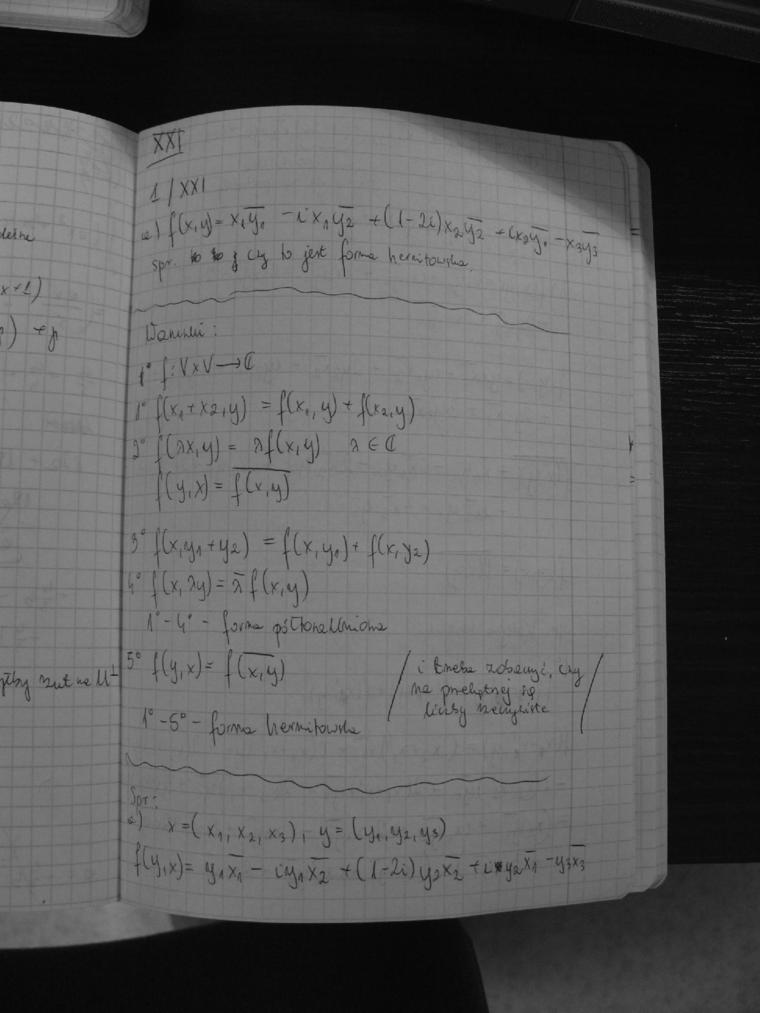 XXI
1/XXI
a) f(x,y) = x₁y̅₁ - i x₁y̅₂ + (1-2i)x₂y̅₂ + ix₂y̅₁ - x₃y̅₃
spr. czy to jest forma hermitowska.
Warunki:
1° f: V×V → ℂ
1° f(x₁+x₂,y) = f(x₁,y) + f(x₂,y)
2° f(λx,y) = λf(x,y) λ ∈ ℂ
f(y,x) = \overline{f(x,y)}
3° f(x,y₁+y₂) = f(x,y₁) + f(x,y₂)
4° f(x,λy) = λ̅ f(x,y)
1°-4° - forma półtoraliniowa
5° f(y,x) = f(\overline{x,y})
/ i trzeba zobaczyć, czy
na przekątnej są
liczby rzeczywiste /
1°-5° - forma hermitowska
Spr:
a) x = (x₁, x₂, x₃), y = (y₁, y₂, y₃)
f(y,x) = y₁x̅₁ - iy₁x̅₂ + (1-2i)y₂x̅₂ + i y₂x̅₁ - y₃x̅₃
x+1)
) + p
rzut na U⊥